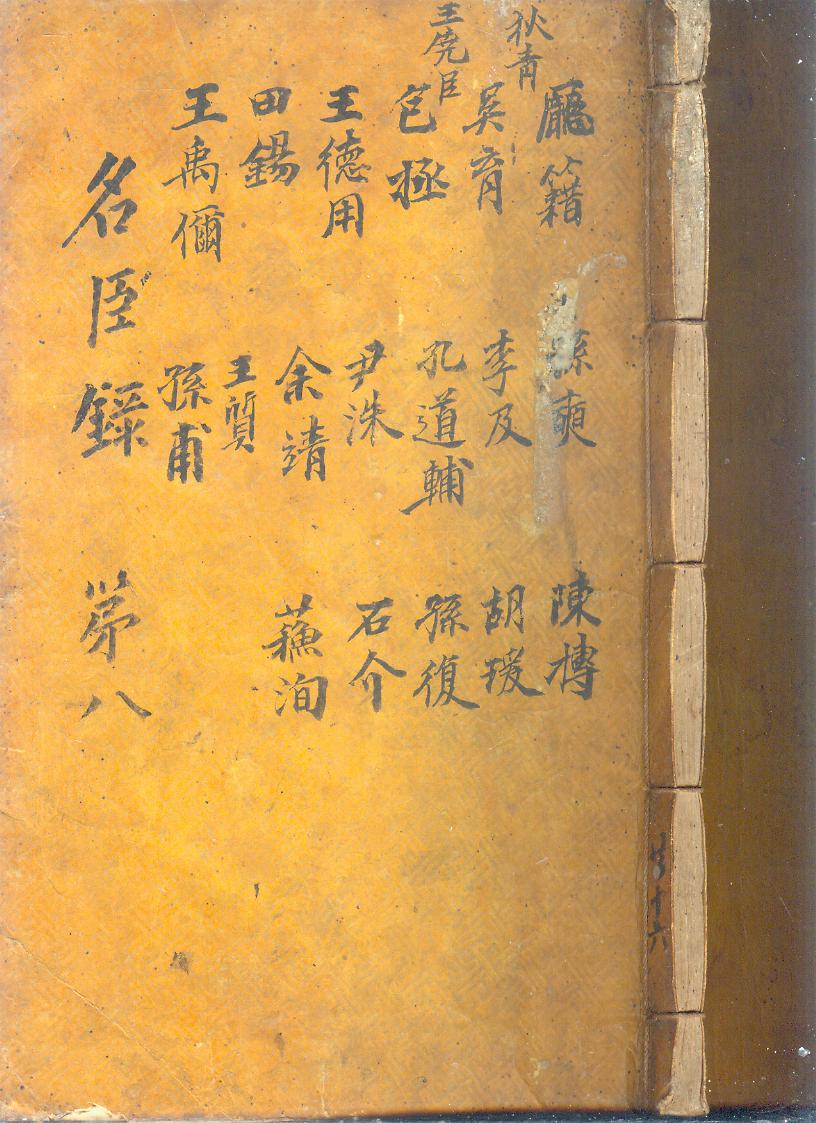 龐籍
狄青
吳育
王堯臣
包拯
王德用
田錫
王禹偁
孫奭
李及
孔道輔
尹洙
余靖
王質
孫甫
陳摶
胡瑗
孫復
石介
蘓洵
名臣錄 第八
共十六